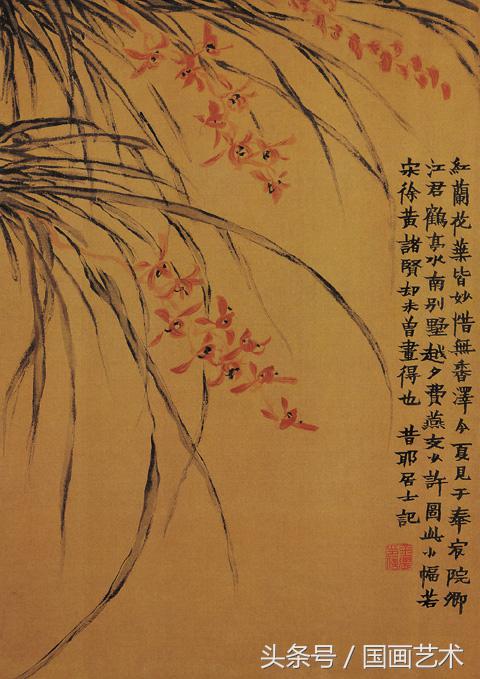 紅蘭花葉皆妙惜無香澤今夏見于奉宸院卿
江君鶴亭水南別墅越夕費燕支少許圖此小幅若
宋徐黃諸賢却未曾畫得也 昔耶居士記
头条号 / 国画艺术